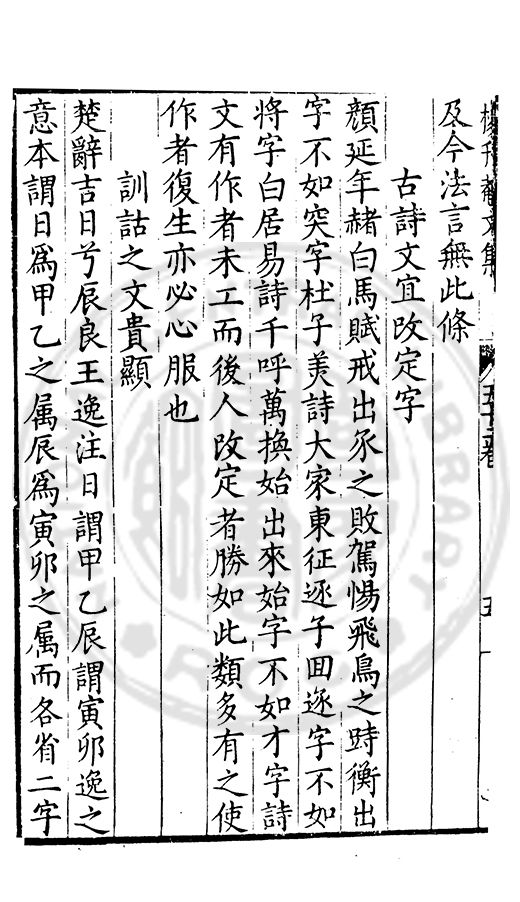 楊升菴文集
五十二卷
五
及今法言無此條
古詩文宜改定字
顔延年赭白馬賦戒出豕之敗駕惕飛鳥之跱衡出
字不如突字杜子美詩大家東征逐子囬逐字不如
將字白居易詩千呼萬換始出來始字不如才字詩
文有作者未工而後人改定者勝如此類多有之使
作者復生亦必心服也
訓詁之文貴顯
楚辭吉日兮辰良王逸注日謂甲乙辰謂寅卯逸之
意本謂日爲甲乙之属辰爲寅卯之属而各省二字